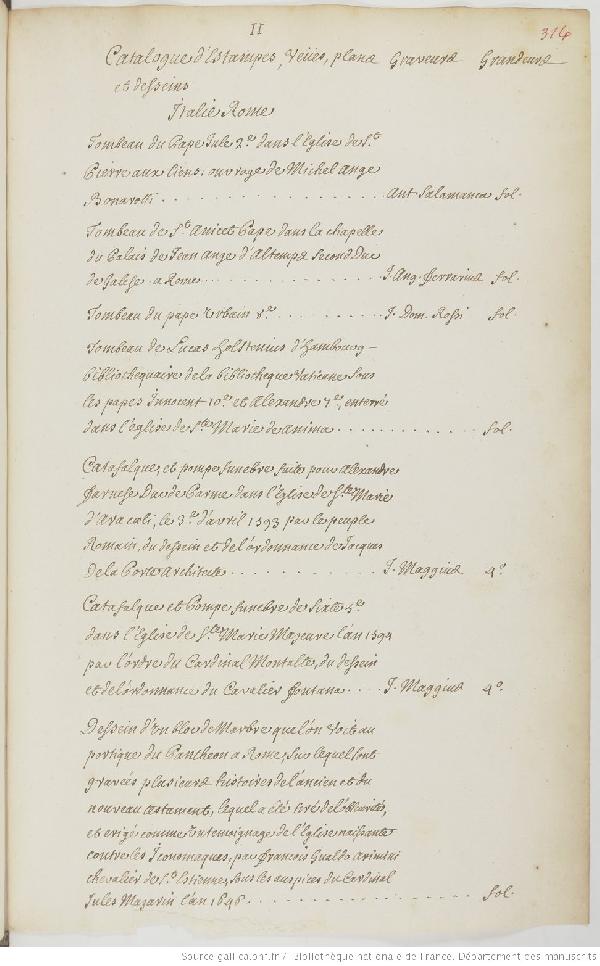 II
316
Catalogue d'Estampes, Veües, plans Graveurs Grandeurs
et desseins
Italie Rome
Tombeau du Pape Jule 2.e dans l'Eglise de S.t
Pierre aux liens. ouvrage de Michel Ange
Bonaroti . . . . . . . . . . Ant Salamanca fol.
Tombeau de S.t Anicet Pape dans la chapelle
du Palais de Jean Ange d'Altemps Second Duc
de Galese a Rome . . . . . . . J. Ang. Ferrarius fol.
Tombeau du pape Urbain 8.e . . . . . . J. Dom. Rossi fol.
Tombeau de Lucas Holstenius d'Hambourg –
bibliothequaire de la bibliotheque Vaticane sous
les papes Innocent 10.e et Alexandre 7.e, enterré
dans l'église de S.te Marie de anima . . . . . . . . fol.
Catafalque, et pompe funebre faite pour Alexandre
Farnese Duc de Parme dans l'Eglise de S.te Marie
d'Ara cæli, le 3.e d'avril 1593 par le peuple
Romain, du dessein et de l'ordonnance de Jacques
De la Porte Architecte . . . . . . . J. Maggius 4.o
Catafalque et Pompe funebre de Sixte 5.e
dans l'Eglise de S.te Marie Majeure l'an 1591
par l'ordre du Cardinal Montalte, du dessein
et de l'ordonnance du Cavalier fontana . . . J. Maggius 4.o
Dessein d'un bloc de Marbre que l'on Voit au
portique du Pantheon a Rome, sur lequel sont
gravées plusieurs histoires de l'ancien et du
nouveau testament, lequel a été tiré de
et erigé comme un temoignage de l'Eglise naissante
contre les Iconomaques, par François Gualdo arimini
chevalier de S.t Estienne, sous les auspices du Cardinal
Jules Mazarin l'an 1646 . . . . . . . . . . . fol.
Source gallica.bnf.fr / Bibliothèque nationale de France. Département des manuscrits